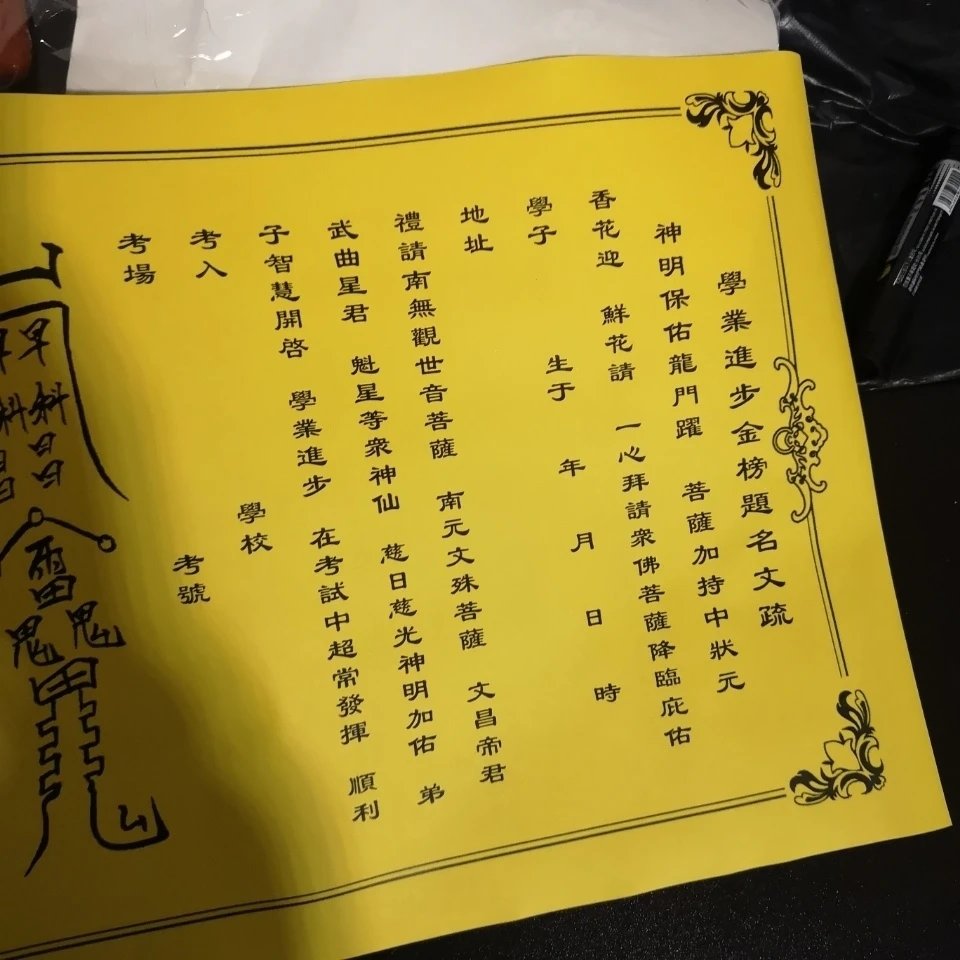 學業進步金榜題名文疏
神明保佑龍門躍 菩薩加持中狀元
香花迎 鮮花請 一心拜請眾佛菩薩降臨庇佑
學子 生于 年 月 日 時
地址
禮請南無觀世音菩薩 南元文殊菩薩 文昌帝君
武曲星君 魁星等眾神仙 慈日慈光神明加佑 弟
子智慧開啓 學業進步 在考試中超常發揮 順利
考入 學校
考場 考號